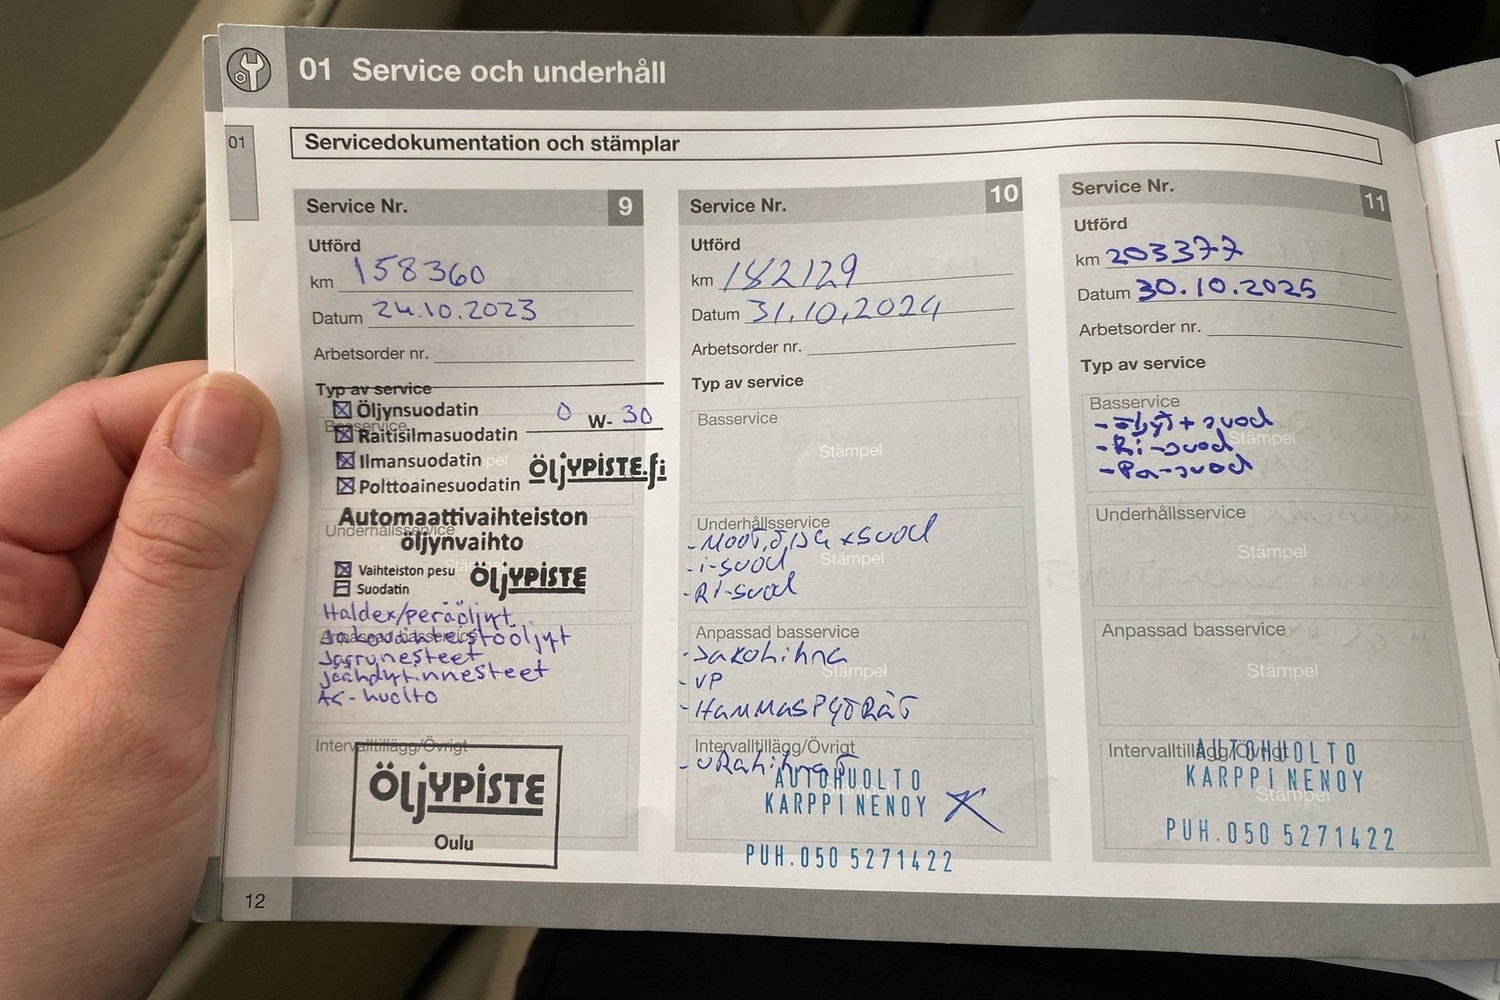 01 Service och underhåll
01
Servicedokumentation och stämplar
Service Nr. 9
Utförd
km 158360
Datum 24.10.2023
Arbetsorder nr.
Typ av service
Öljynsuodatin 0 W- 30
Basservice
Raitisilmasuodatin
Ilmansuodatin
Polttoainesuodatin
ÖljYPiSTE.fi
Automaattivaihteiston
Underhållsservice
öljynvaihto
Vaihteiston pesu
Suodatin
ÖljYPiSTE
Haldex/peräöljyt
Anpassad basservice
Jakovaihteistoöljyt
Jarrunesteet
Jäähdytinnesteet
AC-huolto
Intervalltillägg/Övrigt
ÖljYPiSTE
Oulu
Service Nr. 10
Utförd
km 182129
Datum 31.10.2024
Arbetsorder nr.
Typ av service
Basservice
Stämpel
Underhållsservice
-Moot.öljy+suod
-i-suod
Stämpel
-Ri-suod
Anpassad basservice
-Jakohihna
Stämpel
-VP
-HammasPYÖRÄT
Intervalltillägg/Övrigt
-URahihnat
AUTOHUOLTO
Stämpel
KARPPINENOY
PUH.050 5271422
Service Nr. 11
Utförd
km 203377
Datum 30.10.2025
Arbetsorder nr.
Typ av service
Basservice
-Öljyt+suod
-Ri-suod
Stämpel
-Pa-suod
Underhållsservice
Stämpel
Anpassad basservice
Stämpel
Intervalltillägg/Övrigt
AUTOHUOLTO
KARPPINENOY
Stämpel
PUH.050 5271422
12